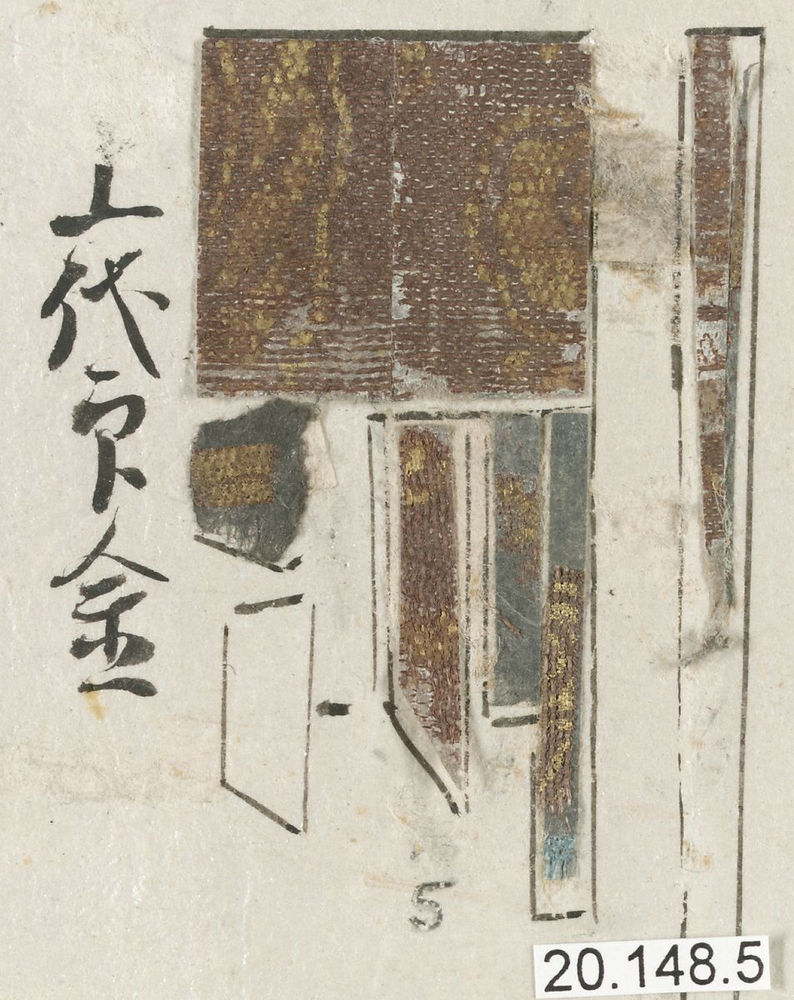 上代印金
5
20.148.5